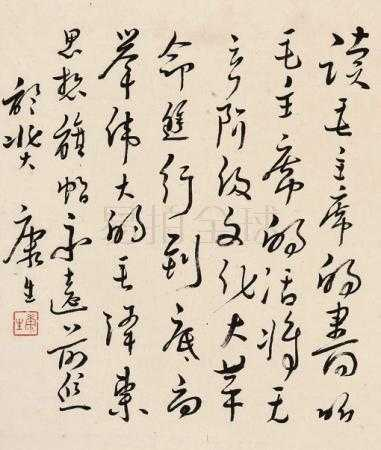 读毛主席的書听
毛主席的话将无
产阶级文化大革
命進行到底高
举伟大的毛泽东
思想旗帜永远前進
康生
康生
易拍全球